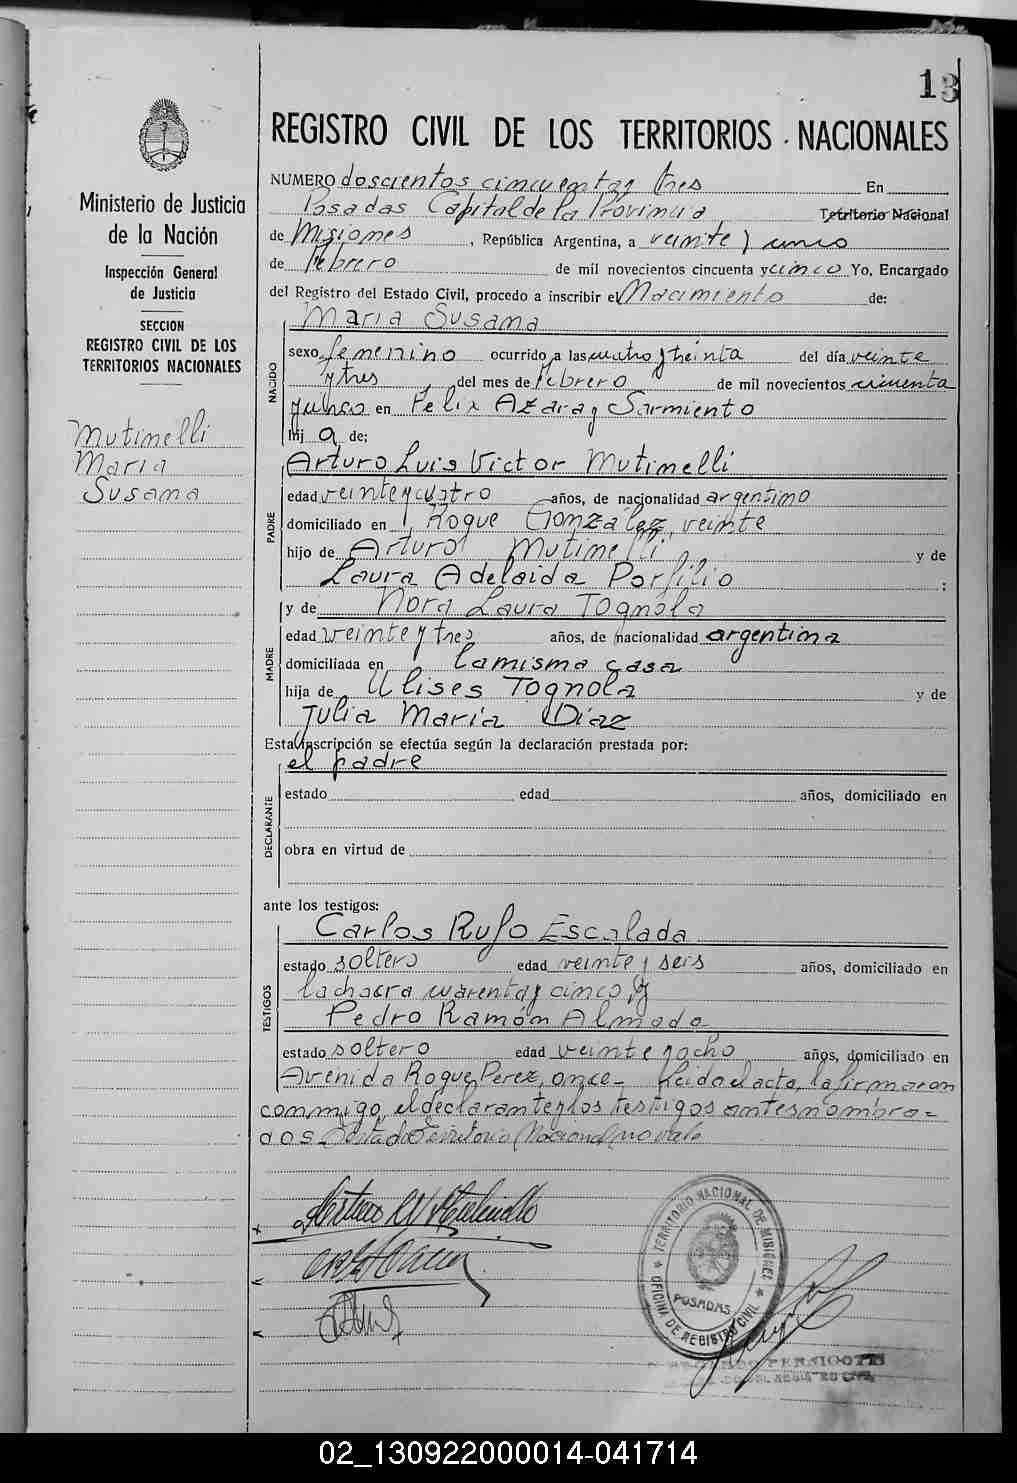 13
REGISTRO CIVIL DE LOS TERRITORIOS NACIONALES
Ministerio de Justicia
de la Nación
Inspección General
de Justicia
SECCION
REGISTRO CIVIL DE LOS
TERRITORIOS NACIONALES
Mutinelli
Maria
Susana
NUMERO doscientos cincuenta y tres En
Posadas Capital de la Provincia Territorio Nacional
de Misiones, República Argentina, a veinte y cinco
de Febrero de mil novecientos cincuenta y cinco Yo, Encargado
del Registro del Estado Civil, procedo a inscribir el Nacimiento de:
NACIDO
Maria Susana
sexo femenino ocurrido a las cuatro y treinta del día veinte
y tres, del mes de Febrero de mil novecientos cincuenta
y cinco en Felix Azara y Sarmiento
hij a de;
PADRE
Arturo Luis Victor Mutinelli
edad veinte y cuatro años, de nacionalidad argentino
domiciliado en Roque González, veinte
hijo de Arturo Mutinelli y de
Laura Adelaida Porfilio;
MADRE
y de Nora Laura Tognola
edad veinte y tres años, de nacionalidad argentina
domiciliada en la misma casa
hija de Ulises Tognola y de
Julia María Diaz
Esta inscripción se efectúa según la declaración prestada por:
DECLARANTE
el padre
estado edad años, domiciliado en
obra en virtud de
ante los testigos:
TESTIGOS
Carlos Rufo Escalada
estado soltero edad veinte y seis años, domiciliado en
la chacra cuarenta y cinco, y
Pedro Ramón Almada
estado soltero edad veinte y ocho años, domiciliado en
Avenida Roque Perez, once - Leida el acta, la firmaron
conmigo, el declarante y los testigos antes nombra=
dos - Testado Territorio Nacional no vale
TERRITORIO NACIONAL DE MISIONES
POSADAS
OFICINA DE REGISTRO CIVIL
02_130922000014-041714